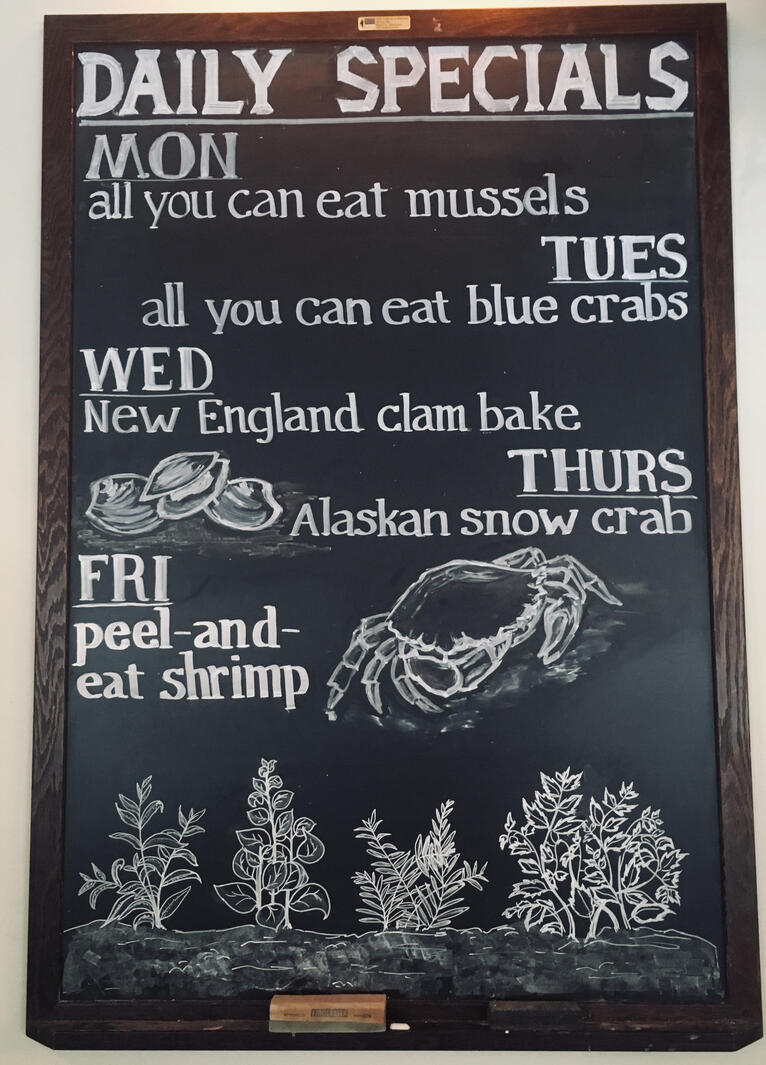 DAILY SPECIALS
MON
all you can eat mussels
TUES
all you can eat blue crabs
WED
New England clam bake
THURS
Alaskan snow crab
FRI
peel-and-
eat shrimp